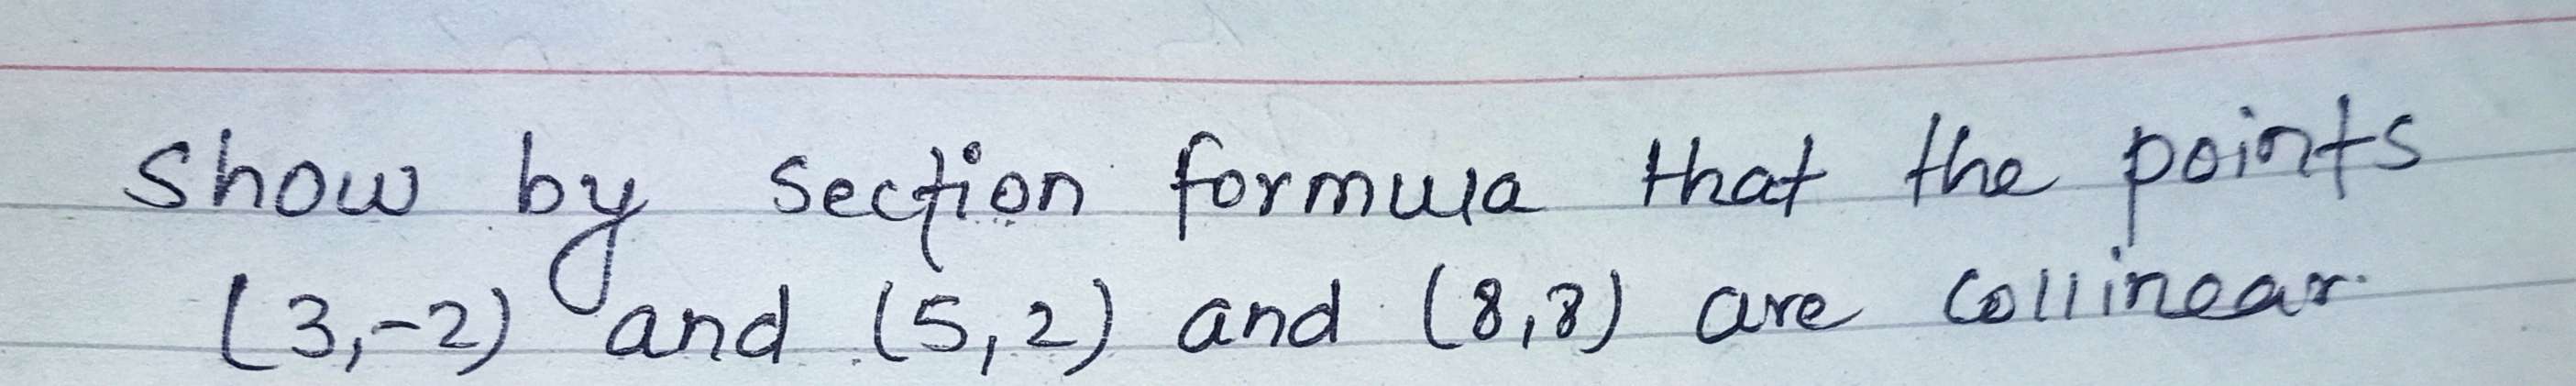 show by section formula that the points
(3,-2) and (5,2) and (8,8) are collinear.